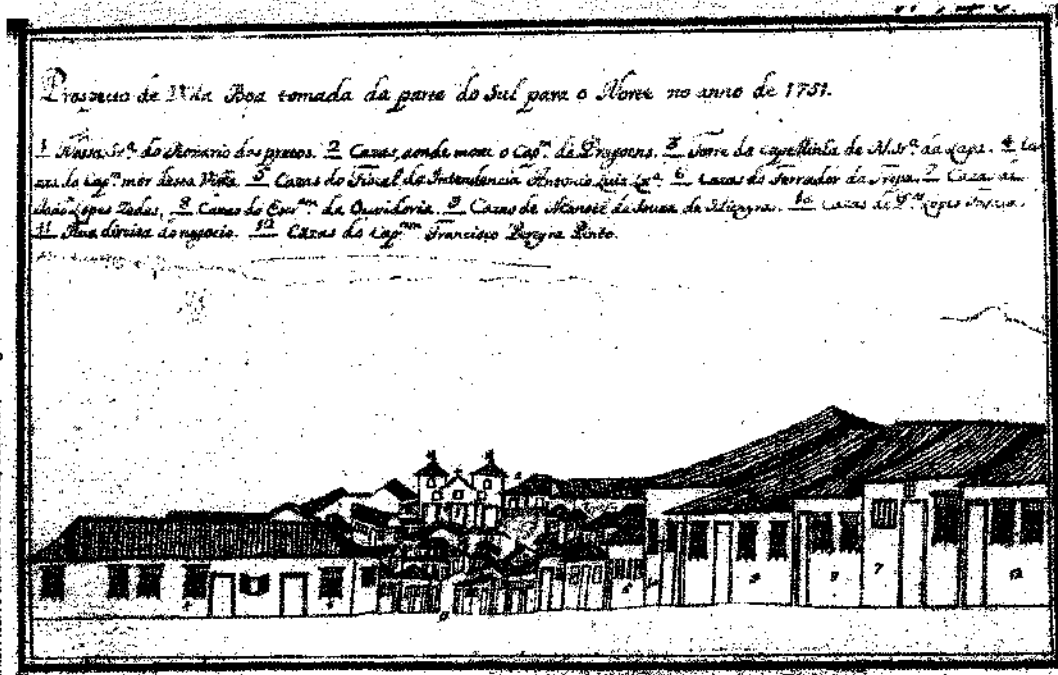 Prospecto de Villa Boa tomada da parte do Sul para o Norte no anno de 1751.
1 Nossa Sr.ª do Rozario dos pretos. 2 Cazas, aonde mora o Cap.^m de Dragoens. 3 Torre da capellinha de N. Sr.ª da Lapa. 4 Ca
zas do Cap.^m mór desta Villa. 5 Cazas do Fiscal da Intendencia Antonio Luiz 6 Cazas do Ferrador da Tropa. 7 Caza de
João Lopes Zedas. 8 Cazas do Esc.^am da Ouvidoria. 9 Cazas de Manoel de Souza de 10 Cazas de Lopes
11 Rua direita do negocio. 12 Cazas do Cap.^mm Francisco Pereyra Pinto.
4 4 9 8 7 12